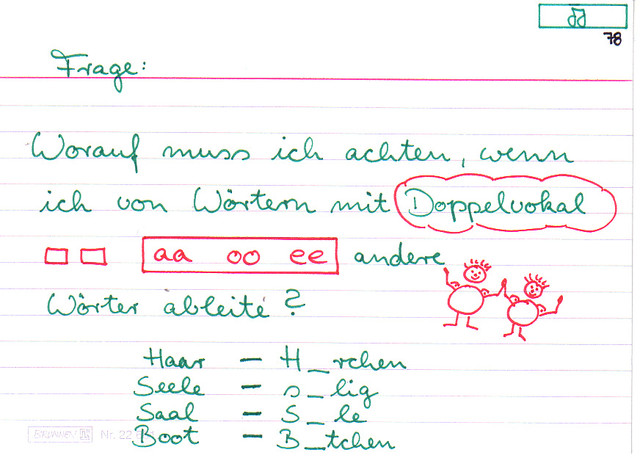 78
Frage:
Worauf muss ich achten, wenn
ich von Wörtern mit Doppelvokal
aa oo ee andere
Wörter ableite?
Haar – H_rchen
Seele – s_lig
Saal – S_le
Boot – B_tchen
BRUNNEN Nr. 22